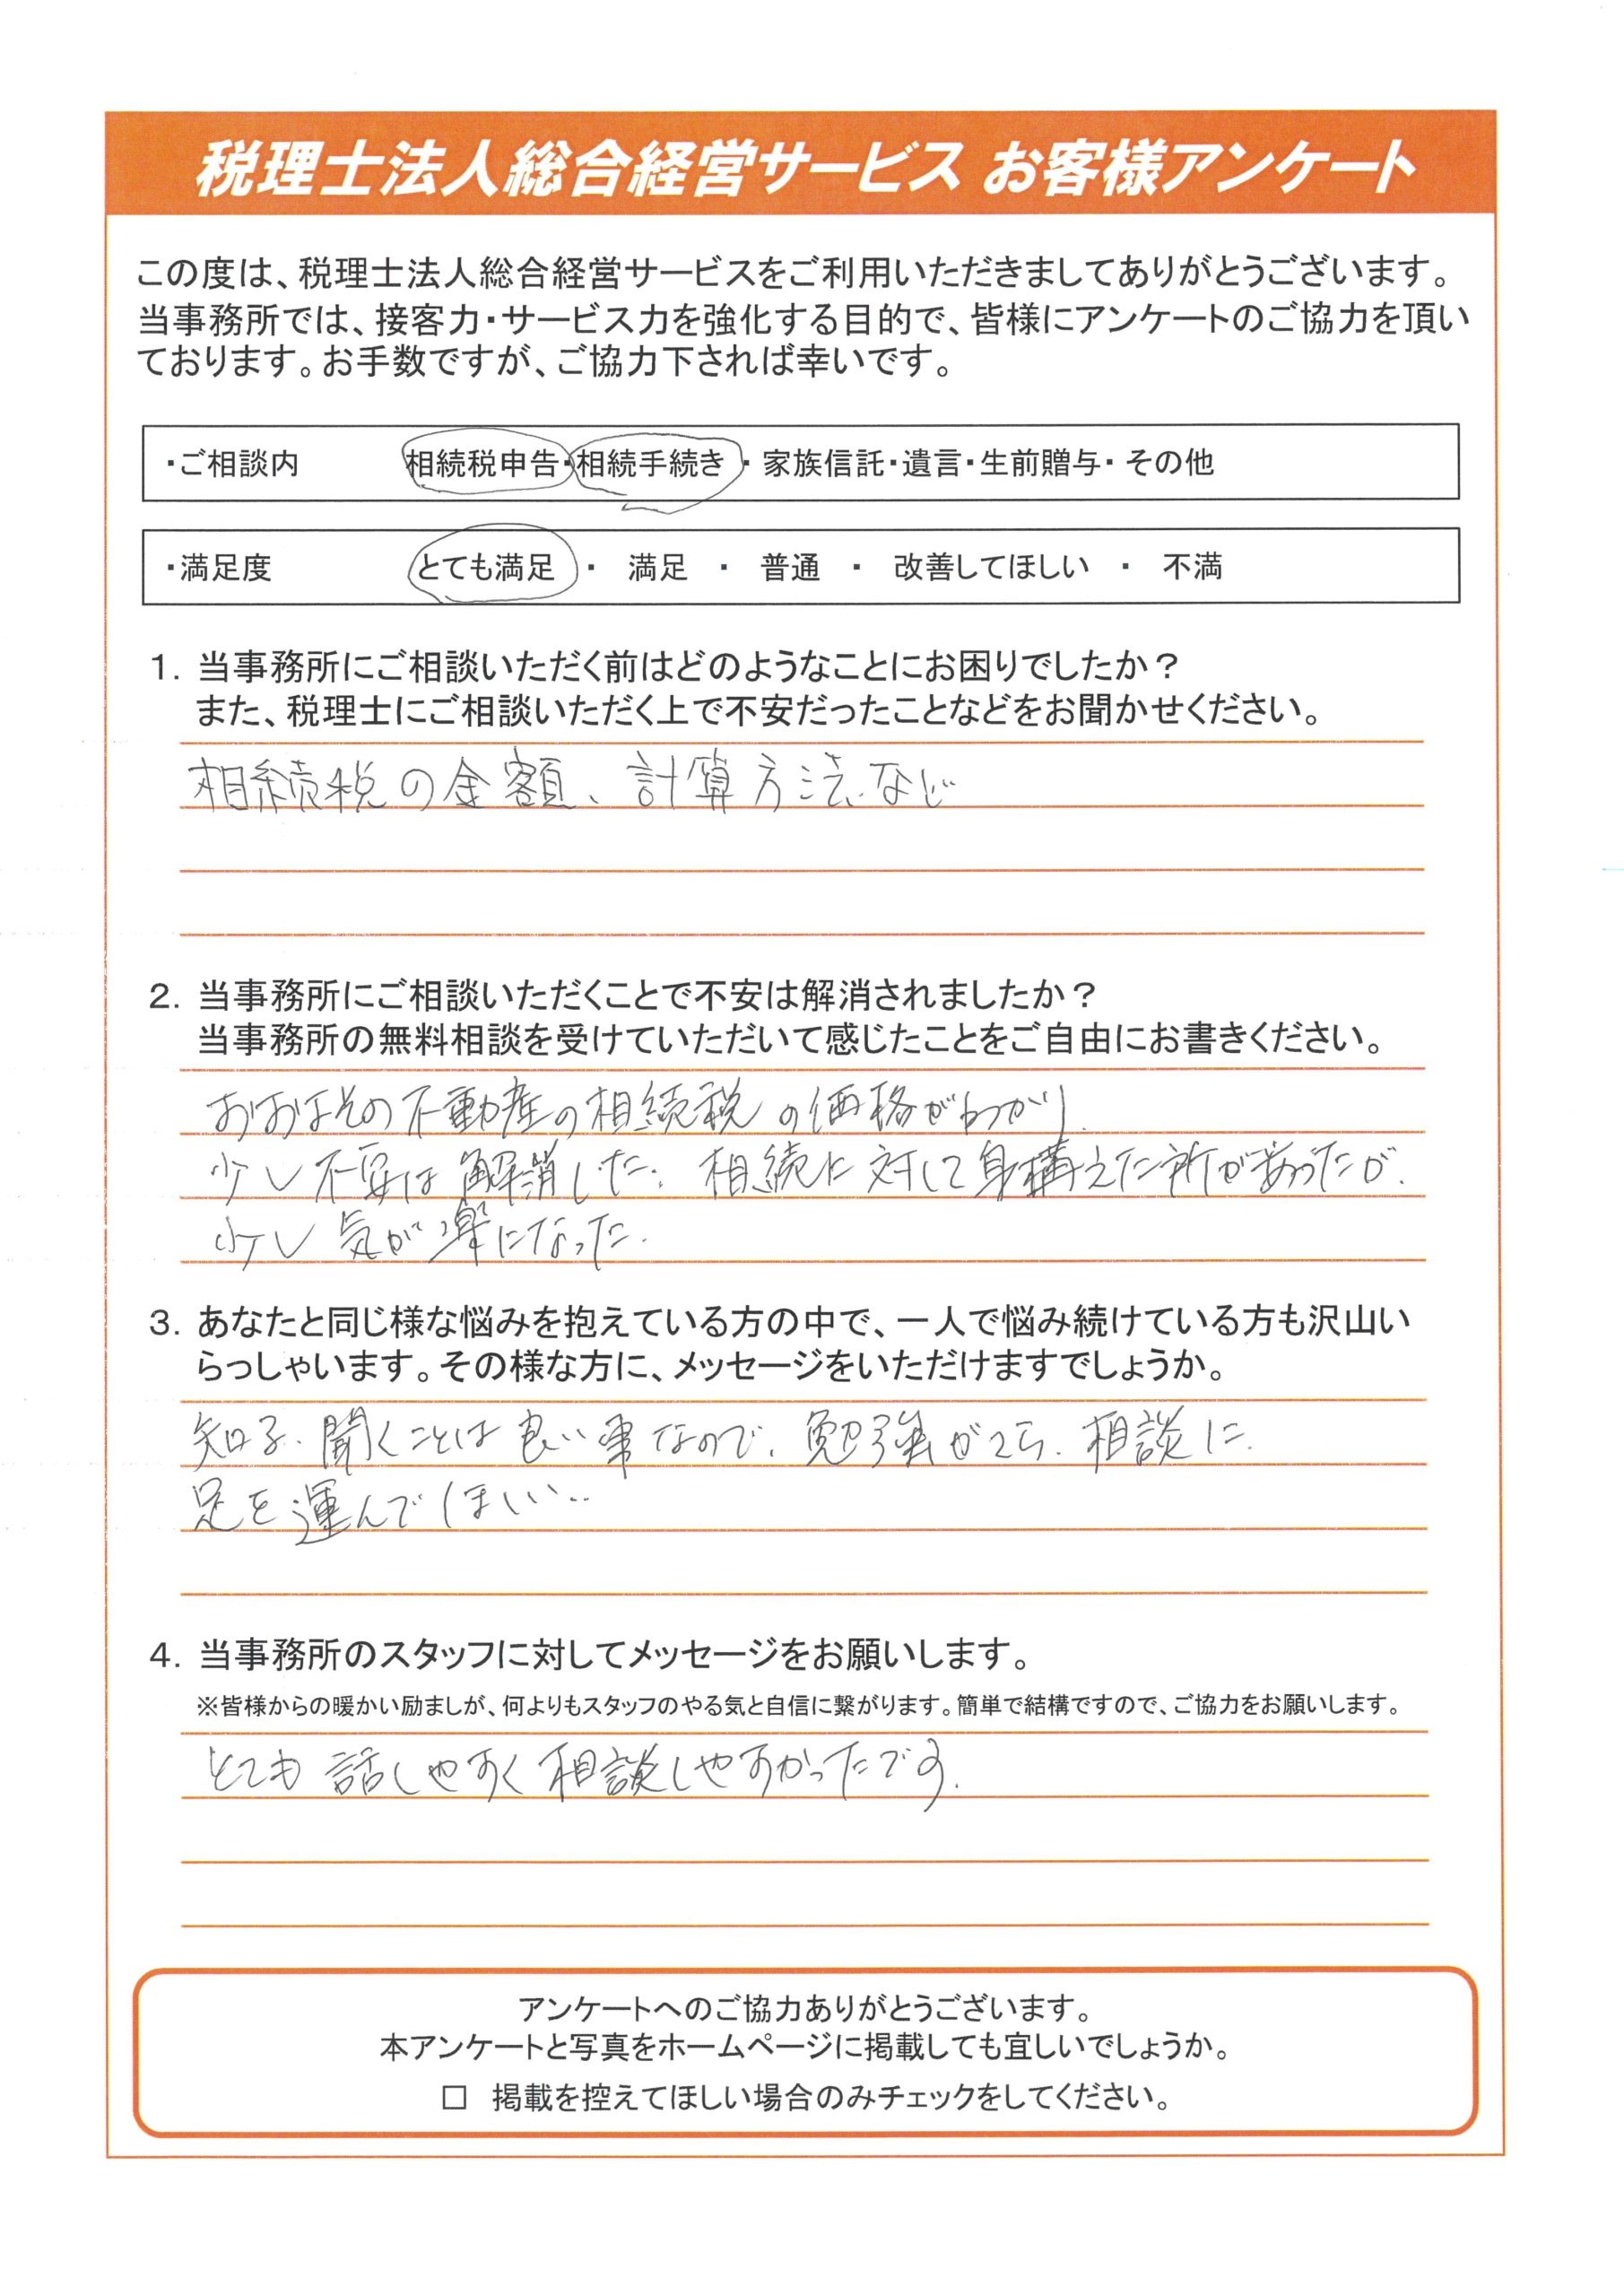 税理士法人総合経営サービス お客様アンケート
この度は、税理士法人総合経営サービスをご利用いただきましてありがとうございます。
当事務所では、接客力・サービス力を強化する目的で、皆様にアンケートのご協力を頂い
ております。お手数ですが、ご協力下されば幸いです。
・ご相談内 相続税申告・相続手続き・家族信託・遺言・生前贈与・その他
・満足度 とても満足 ・ 満足 ・ 普通 ・ 改善してほしい ・ 不満
1. 当事務所にご相談いただく前はどのようなことにお困りでしたか？
また、税理士にご相談いただく上で不安だったことなどをお聞かせください。
相続税の金額、計算方法など
2. 当事務所にご相談いただくことで不安は解消されましたか？
当事務所の無料相談を受けていただいて感じたことをご自由にお書きください。
おおよその不動産の相続税の価格がわかり、
少し不安は解消した。相続に対して身構えた所があったが、
少し気が楽になった。
3. あなたと同じ様な悩みを抱えている方の中で、一人で悩み続けている方も沢山い
らっしゃいます。その様な方に、メッセージをいただけますでしょうか。
知る、聞くことは良い事なので、勉強がてら、相談に
足を運んでほしい..
4. 当事務所のスタッフに対してメッセージをお願いします。
※皆様からの暖かい励ましが、何よりもスタッフのやる気と自信に繋がります。簡単で結構ですので、ご協力をお願いします。
とても話しやすく相談しやすかったです。
アンケートへのご協力ありがとうございます。
本アンケートと写真をホームページに掲載しても宜しいでしょうか。
□ 掲載を控えてほしい場合のみチェックをしてください。